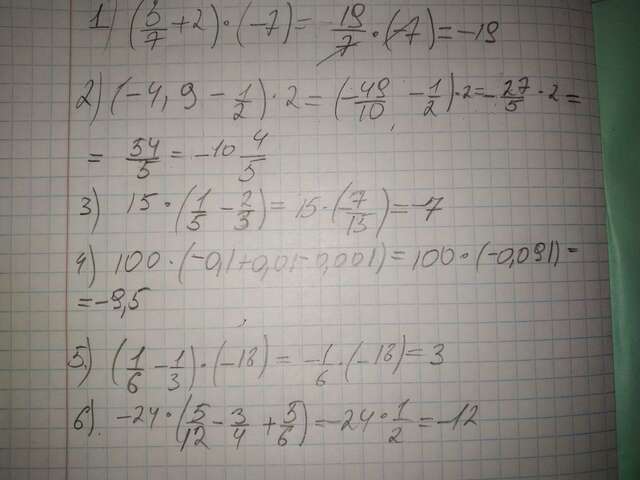 1) (5/7 + 2) · (-7) = 19/7 · (-7) = -19
2) (-4,9 - 1/2) · 2 = (-49/10 - 1/2) · 2 = -27/5 · 2 =
= 54/5 = -10 4/5
3) 15 · (1/5 - 2/3) = 15 · (7/15) = -7
4) 100 · (-0,1+0,01-0,001) = 100 · (-0,091) =
= -9,5
5) (1/6 - 1/3) · (-18) = -1/6 · (-18) = 3
6) -24 · (5/12 - 3/4 + 5/6) = -24 · 1/2 = -12